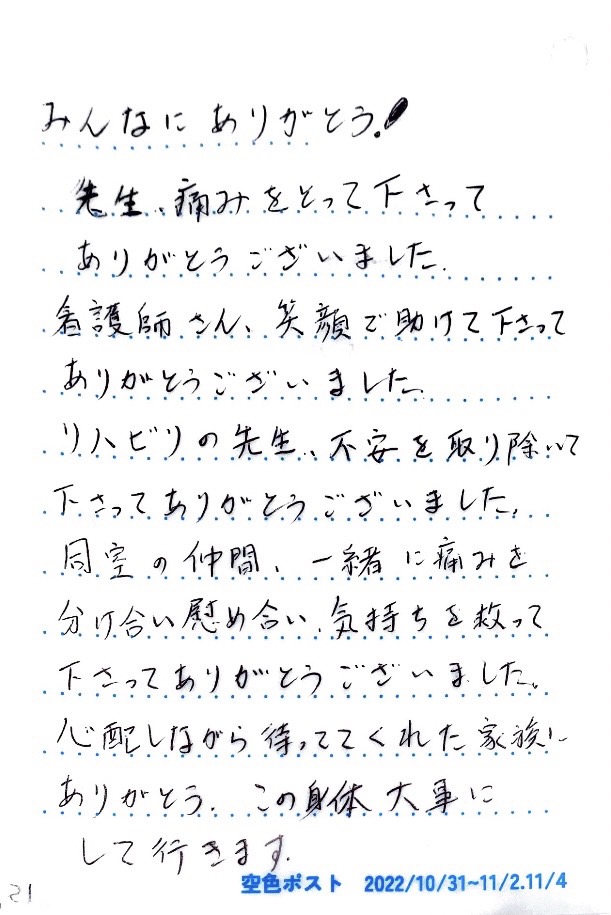 みんなにありがとう!
先生、痛みをとって下さって
ありがとうございました。
看護師さん、笑顔で助けて下さって
ありがとうございました。
リハビリの先生、不安を取り除いて
下さってありがとうございました。
同室の仲間、一緒に痛みを
分け合い慰め合い、気持ちを救って
下さってありがとうございました。
心配しながら待っててくれた家族に
ありがとう。この身体大事に
して行きます。
空色ポスト 2022/10/31~11/2.11/4
21